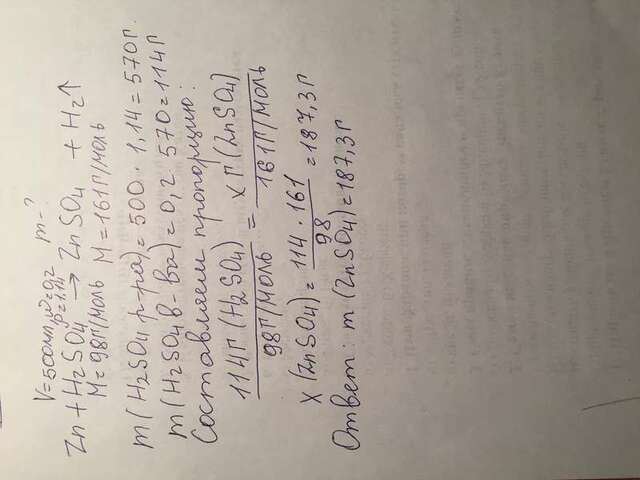 V=500мл, ω=0,2 m-?
ρ=1.14
Zn + H2SO4 → ZnSO4 + H2↑
M=98г/моль M=161г/моль
m(H2SO4 р-ра)=500·1,14=570г.
m(H2SO4 в-ва)=0,2·570=114г
Составляем пропорцию:
114г(H2SO4) = xг(ZnSO4)
98г/моль 161г/моль
x(ZnSO4)=114·161=187,3г
98
Ответ: m(ZnSO4)=187,3г